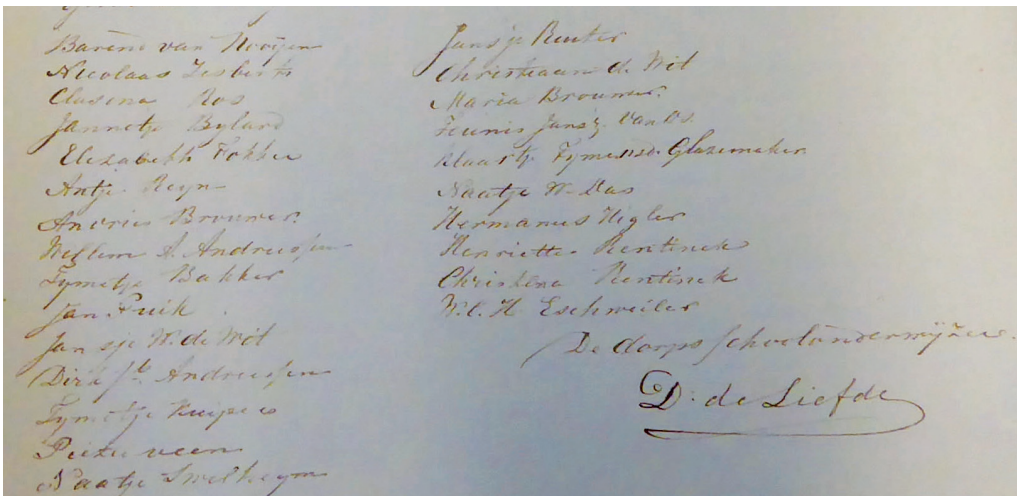 Barend van Nooijen
Nicolaas Lisberts
Clasena Ros
Jannetje Bylard
Elizabeth Fokker
Antje Reyn
Andries Brouwer
Willem A. Andriessen
Tymetje Bakker
Jan Fuik
Jansje W. de Wit
Dirk Andriessen
Tymetje Kuipers
veen
Naatje
Jansje Reuter
Christiaan d. Wit
Maria Brouwer.
Teunis Jansz. van Os.
Klaartje Tymensd. Glazemaker
Naatje W. Das
Hermanus Nigler
Henriette Rentinck
Christina Rentinck
W.C.H. Eschweiler
De dorps schoolonderwijzer.
D. de Liefde